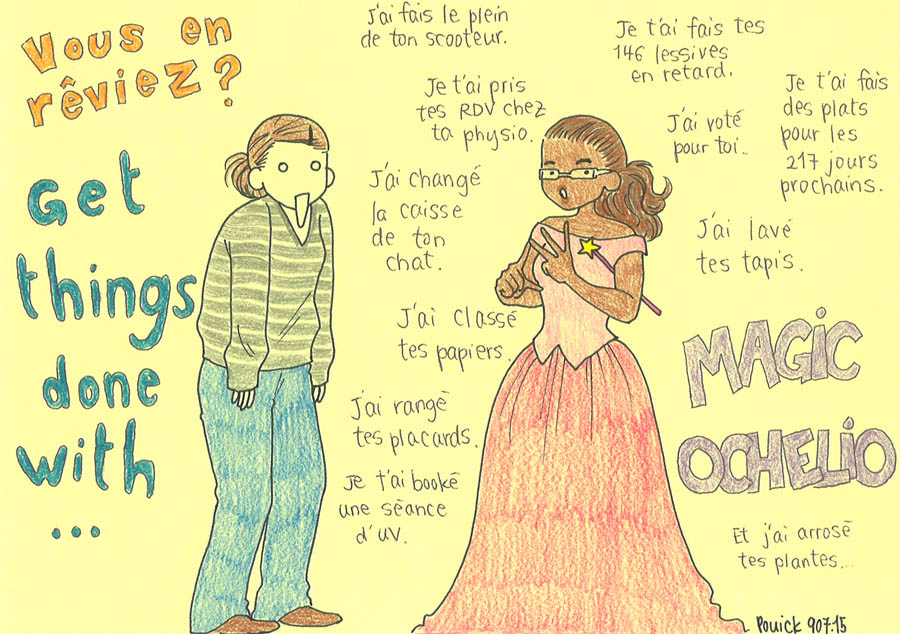 Vous en
rêviez?
Get
things
done
with
...
J'ai fais le plein
de ton scooteur.
Je t'ai pris
tes RDV chez
ta physio.
J'ai changé
la caisse
de ton
chat.
J'ai classé
tes papiers.
J'ai rangé
tes placards.
Je t'ai booké
une séance
d'UV.
Je t'ai fais tes
146 lessives
en retard.
J'ai voté
pour toi..
Je t'ai fais
des plats
pour les
217 jours
prochains.
J'ai lavé
tes tapis.
MAGIC
OCHELIO
Et j'ai arrosé
tes plantes...
Pouick 907.15